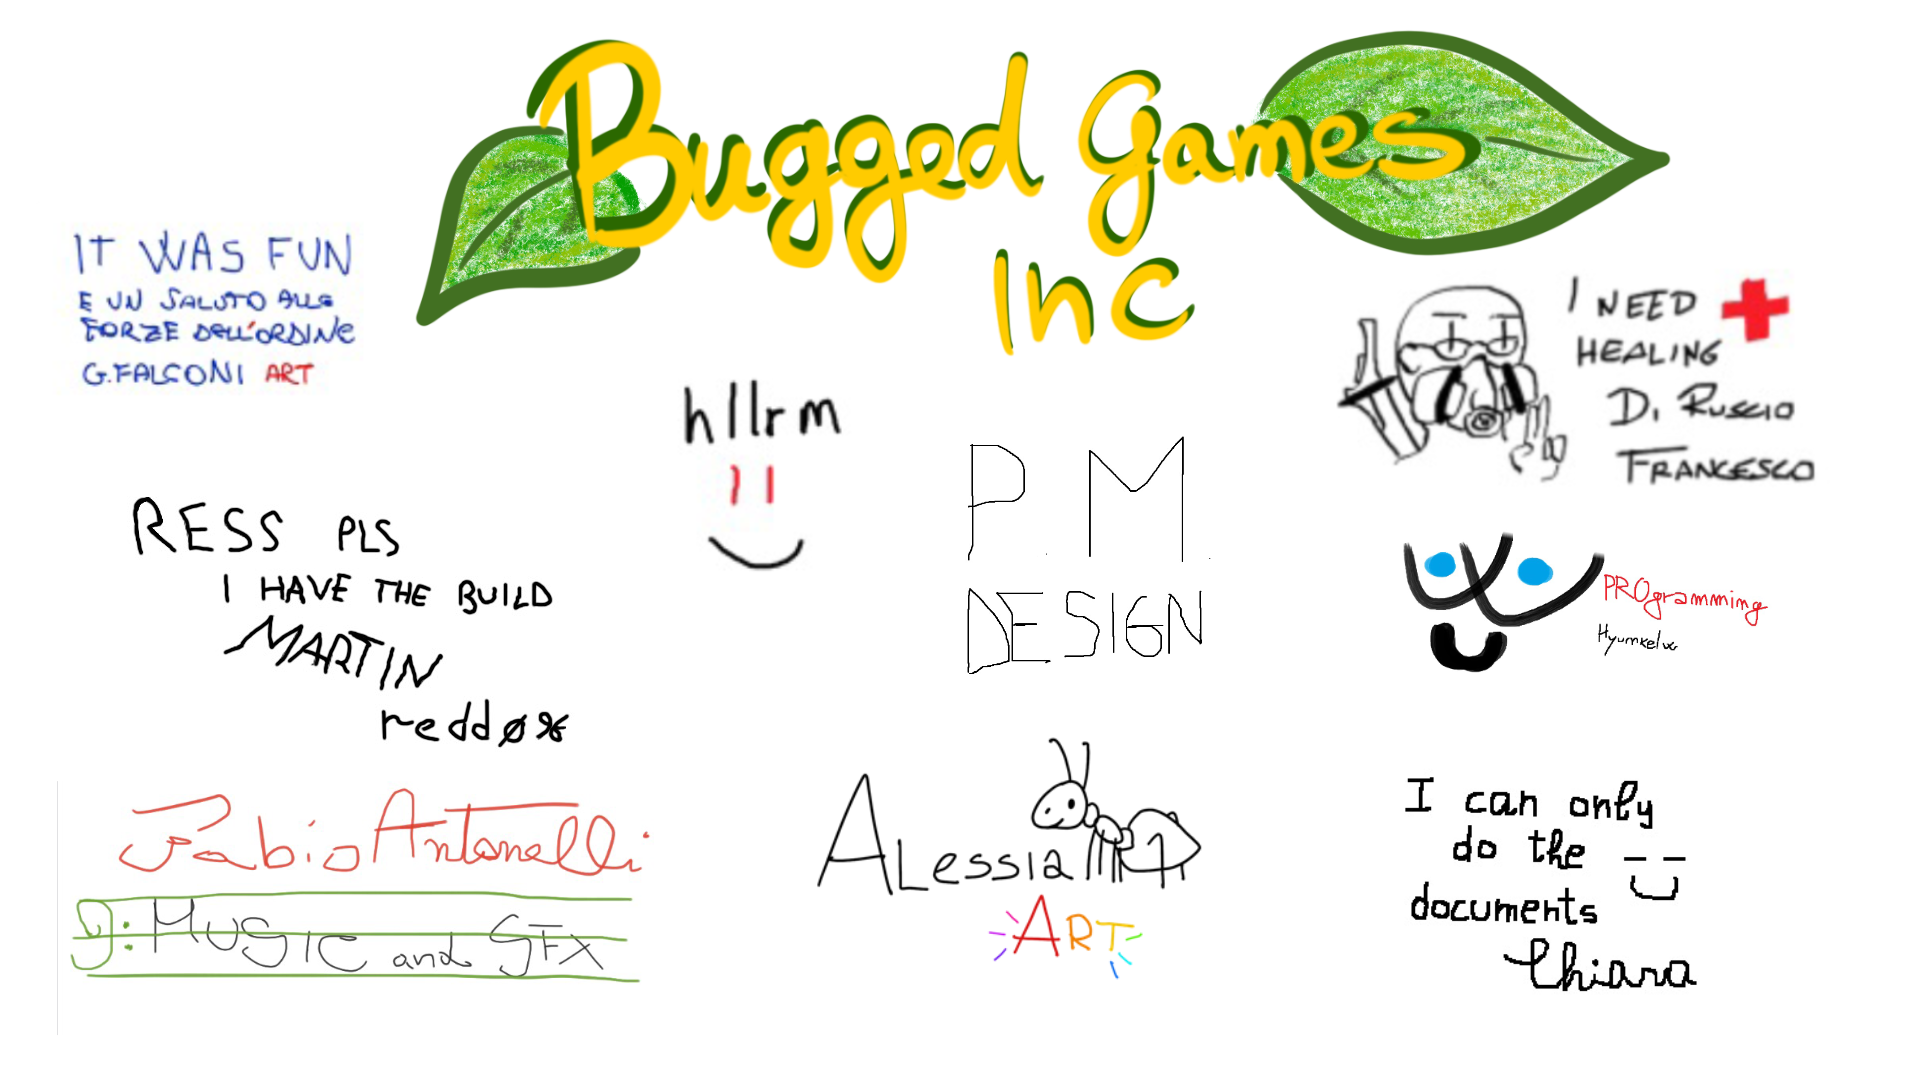 Bugged Games
Inc
IT WAS FUN
E UN SALUTO ALLE
FORZE DELL'ORDINE
G.FALCONI ART
I NEED
HEALING
DI RUSCIO
FRANCESCO
hllrm
P.M.
DESIGN
RESS PLS
I HAVE THE BUILD
MARTIN
PROgramming
Fabio Antonelli
MUSIC and SFX
ALessia
ART
I can only
do the
documents
Chiara